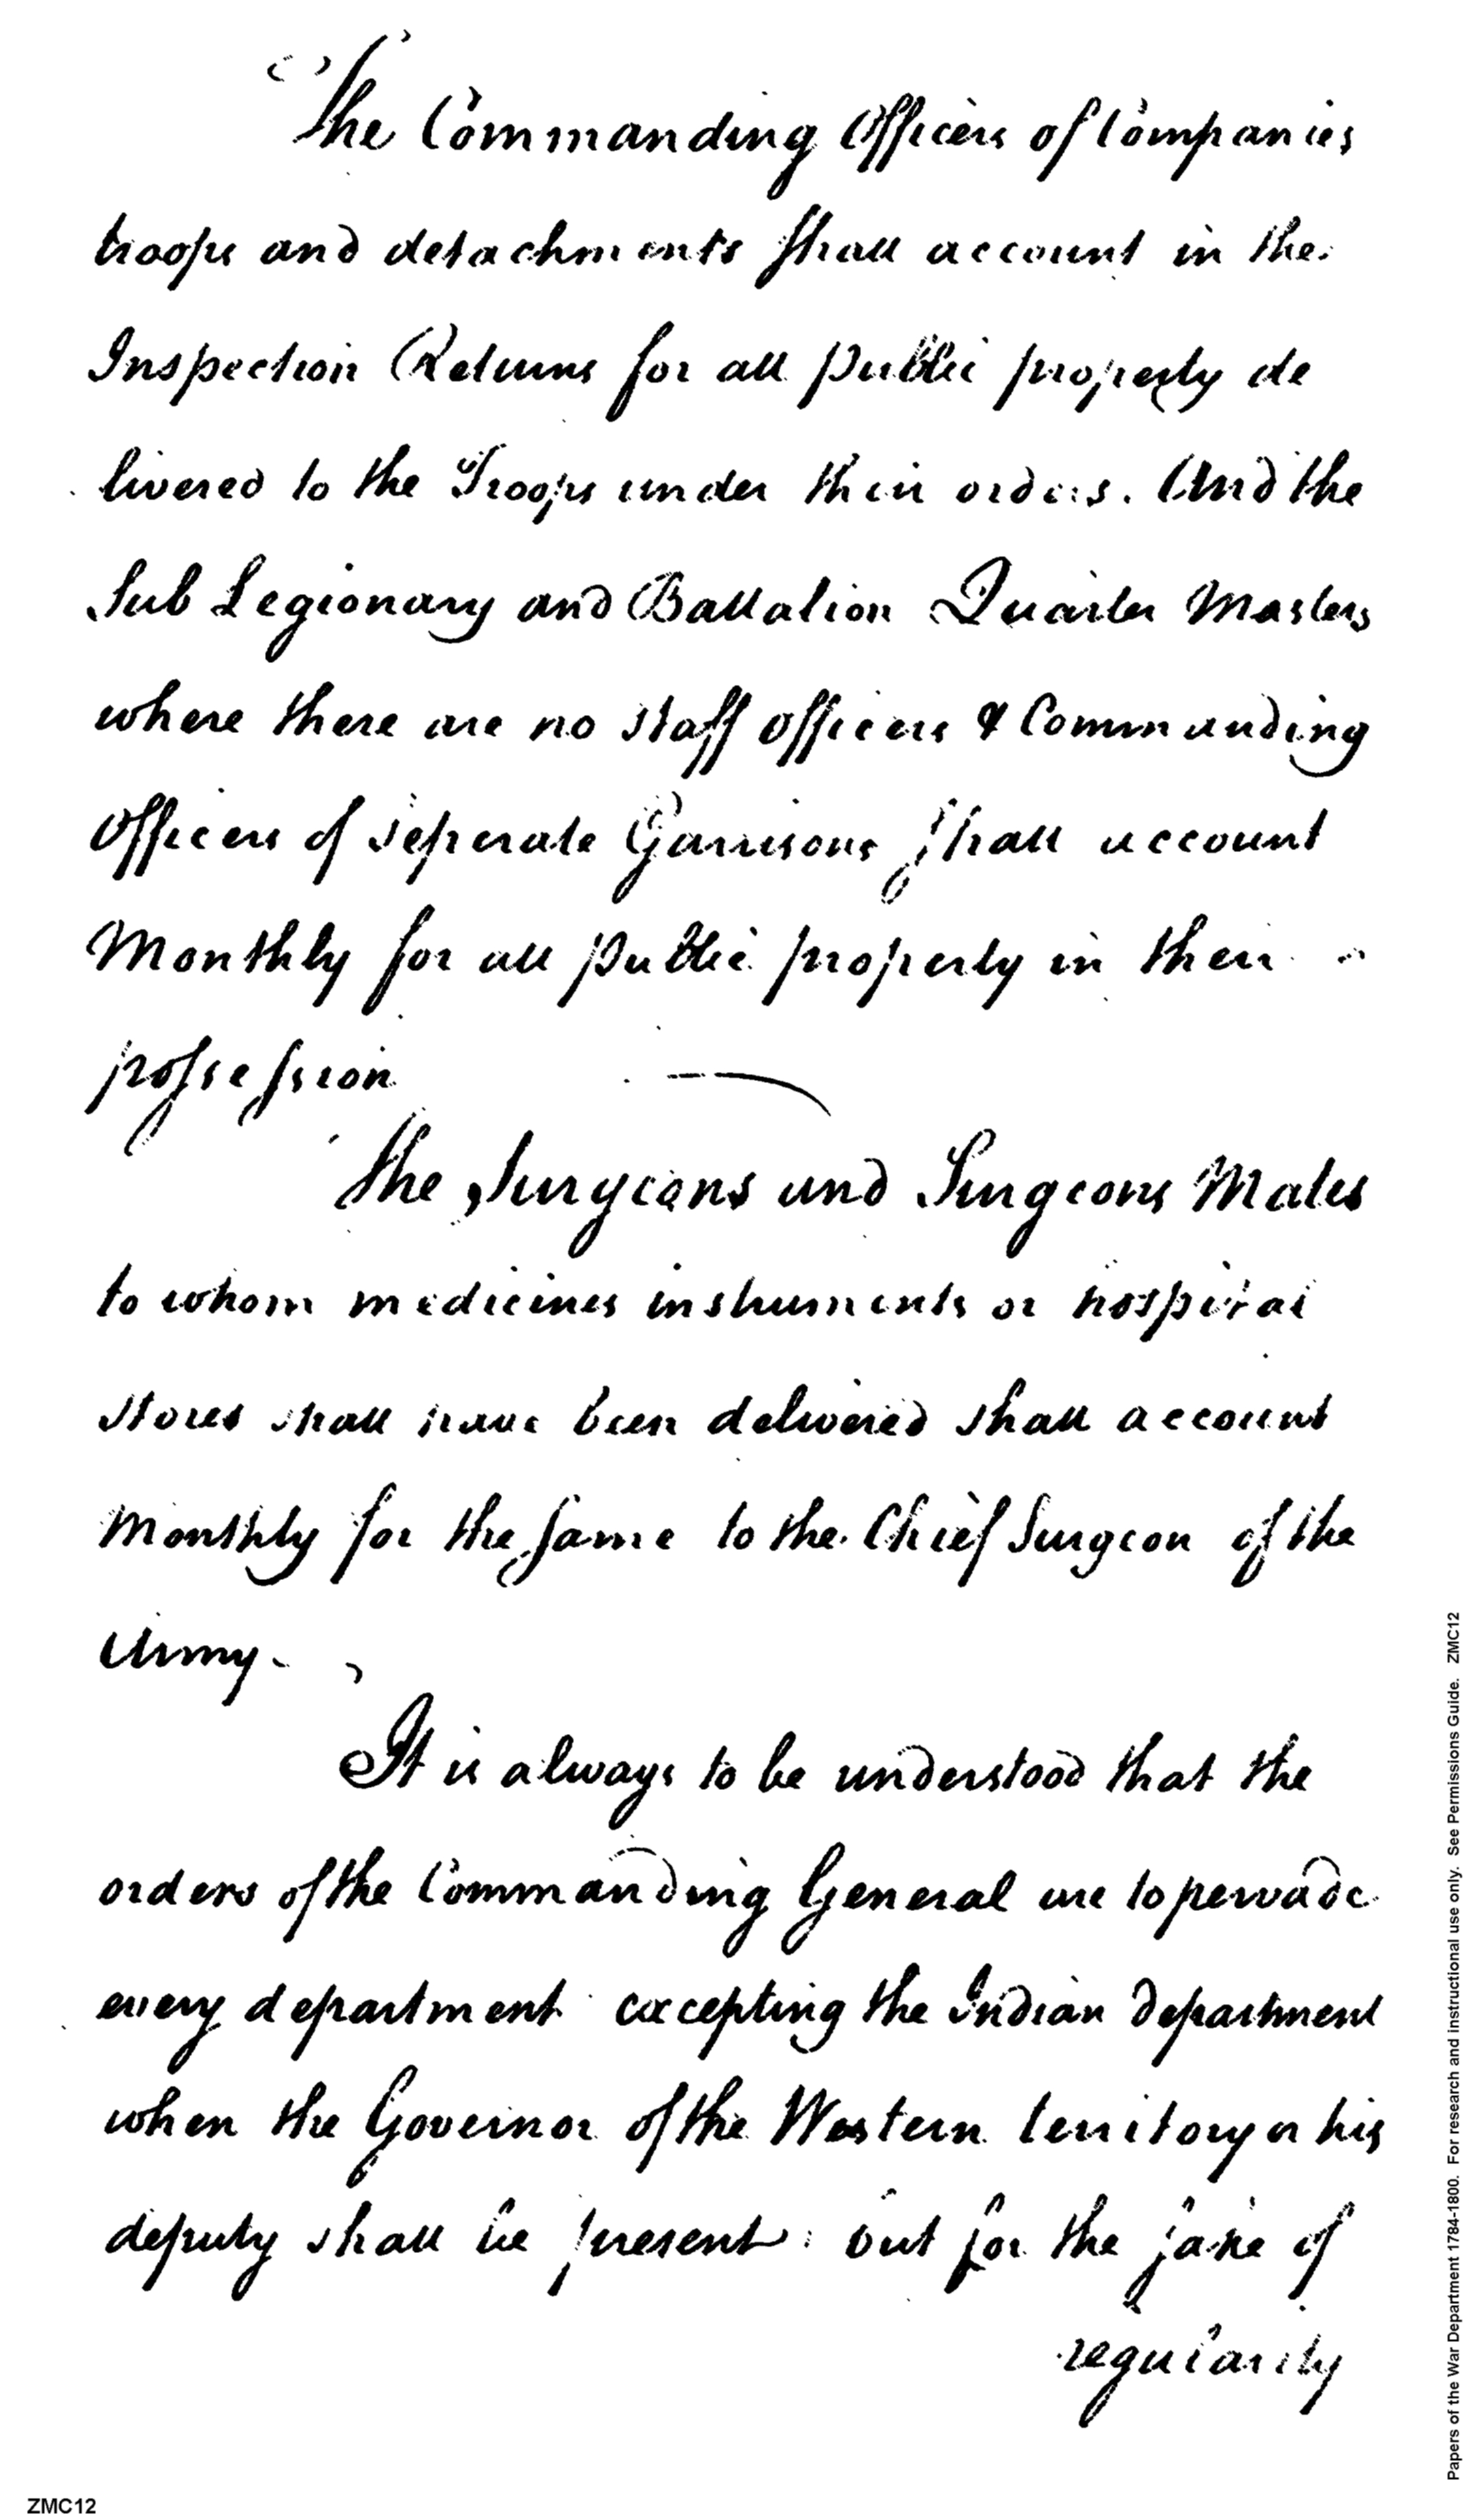 The Commanding Officers of Companies
troops and detachments shall account in the
Inspection Returns for all public property de
livered to the Troops under their orders. And the
Sub Legionary and Battalion Quarter Masters
where there are no staff officers & Commanding
Officers of seperate Garrisons shall account
Monthly for all public property in their
possession
The Surgeons and Surgeons Mates
to whom medicines instruments or hospital
stores shall have been delivered shall account
Monthly for the same to the Chief Surgeon of the
Army-
It is always to be understood that the
orders of the Commanding General are to pervade
every department excepting the Indian department
when the Governor of the Western territory or his
deputy shall be present: but for the sake of
regularity
Papers of the War Department 1784-1800. For research and instructional use only. See Permissions Guide. ZMC12
ZMC12